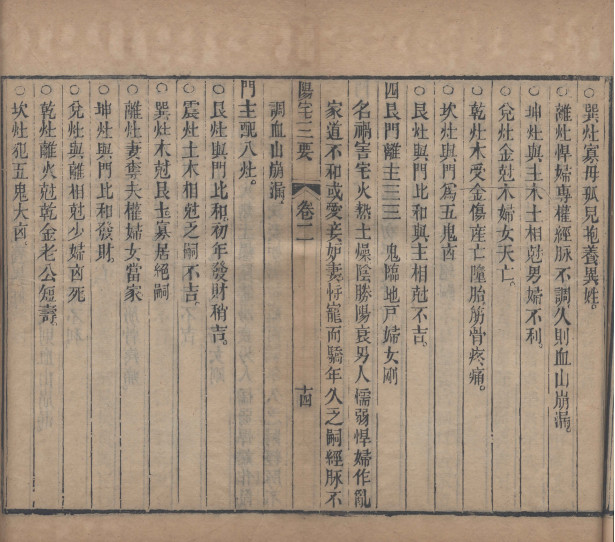 ○巽灶寡母孤兒抱養異姓。
○離灶悍婦專權經脉不調久則血山崩漏。
○坤灶與主木土相尅男婦不利。
○兌灶金尅木婦女夭亡。
○乾灶木受金傷産亡墮胎筋骨疼痛。
○坎灶與門爲五鬼凶
○艮灶與門比和與主相尅不吉。
四艮門離主三三 鬼臨地戸婦女剛
名禍害宅火熱土燥陰勝陽衰男人懦弱悍婦作亂
家道不和或愛妾妒妻恃寵而驕年久乏嗣經脉不
陽宅三要 卷二 十四
調血山崩漏。
門主配八灶。
○艮灶與門比和初年發財稍吉。
○震灶土木相尅乏嗣不吉。
○巽灶木尅艮土寡居絕嗣
○離灶妻奪夫權婦女當家
○坤灶與門比和發財。
○兌灶與離相尅少婦凶死
○乾灶離火尅乾金老公短壽。
○坎灶犯五鬼大凶